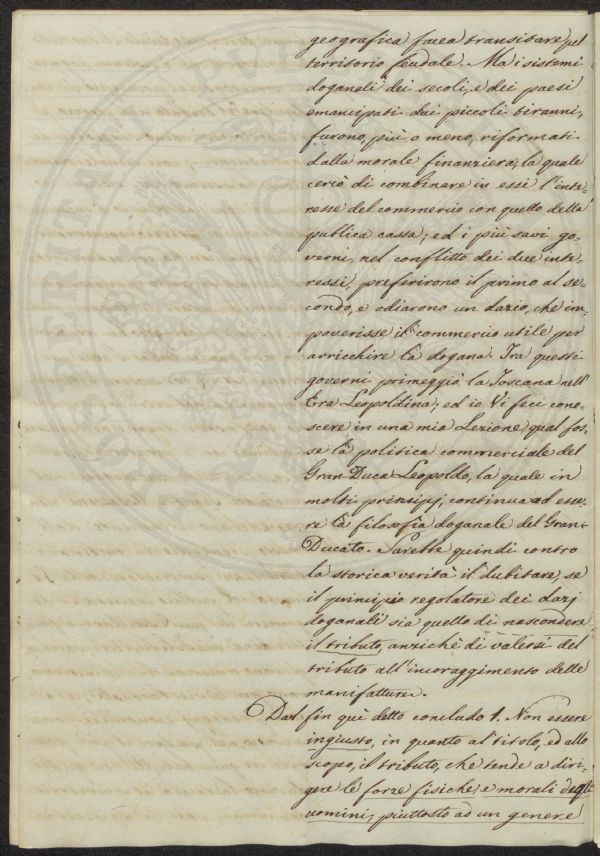 geografica facea transitare pel
territorio feudale. Ma i sistemi
doganali dei secoli, e dei paesi
emancipati dai piccoli tiranni,
furono, più o meno, riformati
dalla morale finanziera, la quale
cercò di combinare in essi l'inte-
resse del commercio con quello della
publica cassa; ed i più savi go-
verni, nel conflitto dei due inte-
ressi, preferirono il primo al se-
condo, e odiarono un dazio, che im-
poverisse il commercio utile per
arricchire la dogana. Tra questi
governi primeggiò la Toscana nell'
Era Leopoldina; ed io Vi feci cono-
scere in una mia Lezione, qual fos-
se la politica commerciale del
Gran Duca Leopoldo, la quale in
molti principj, continua ad esse-
re la filosofia doganale del Gran-
Ducato. Sarebbe quindi contro
la storica verità il dubitare, se
il principio regolatore dei dazj
doganali sia quello di nascondere
il tributo, anzichè di valersi del
tributo all'incoraggimento delle
manifatture.
Dal fin quì detto concludo 1. Non essere
ingiusto, in quanto al titolo, ed allo
scopo, il tributo, che tende a diri-
gere le forze fisiche, e morali degli
uomini, piuttosto ad un genere